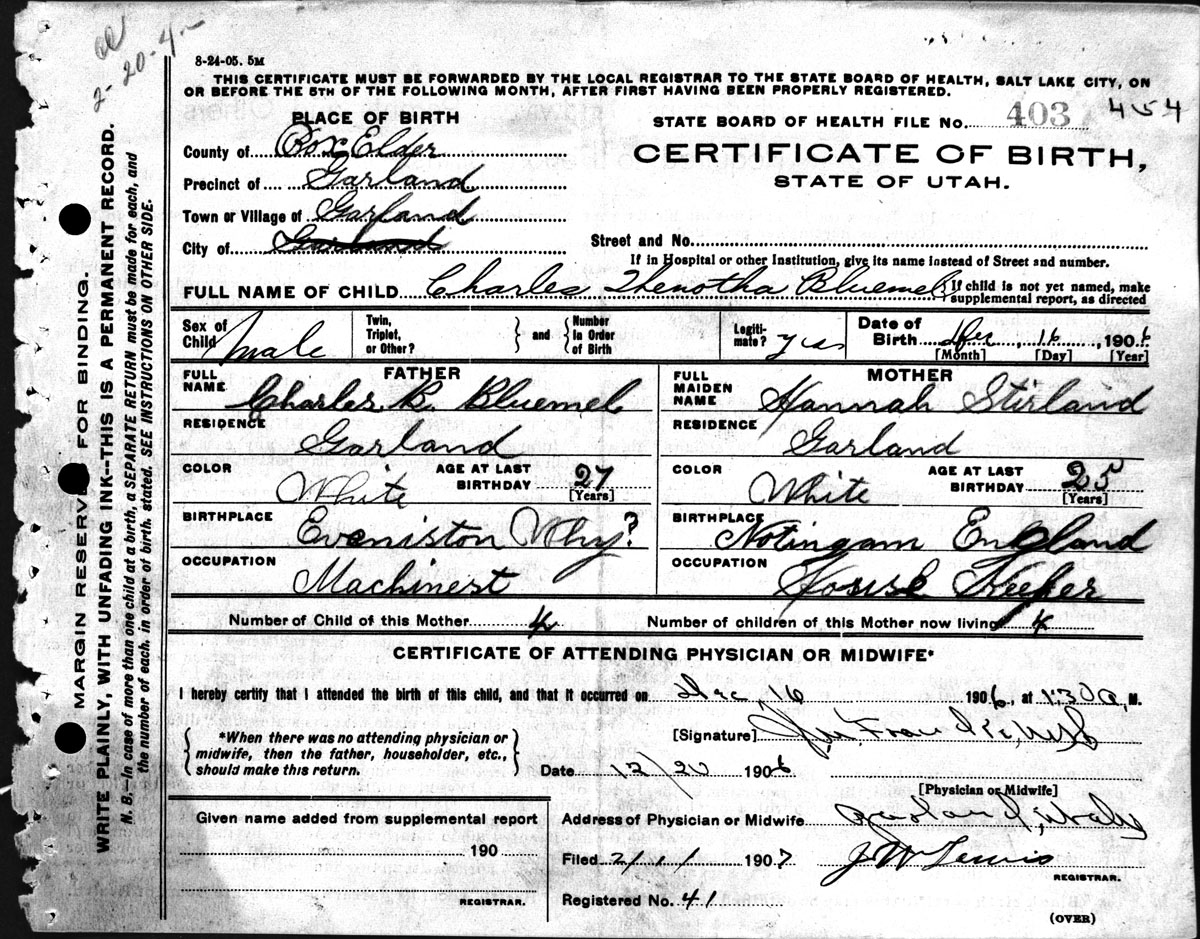 2-20-4
8-24-05. 5M
THIS CERTIFICATE MUST BE FORWARDED BY THE LOCAL REGISTRAR TO THE STATE BOARD OF HEALTH, SALT LAKE CITY, ON
OR BEFORE THE 5TH OF THE FOLLOWING MONTH, AFTER FIRST HAVING BEEN PROPERLY REGISTERED.
PLACE OF BIRTH
STATE BOARD OF HEALTH FILE No. 403 454
County of Box Elder
CERTIFICATE OF BIRTH,
Precinct of Garland
STATE OF UTAH.
Town or Village of Garland
City of Garland
Street and No.
If in Hospital or other Institution, give its name instead of Street and number.
FULL NAME OF CHILD Charles Thenotha Bluemel
If child is not yet named, make
supplemental report, as directed
Sex of Child Male
Twin, Triplet, or Other?
and
Number in Order of Birth
Legiti- mate? yes
Date of Birth Dec, 16, 1906
[Month] [Day] [Year]
FATHER
MOTHER
FULL NAME Charles B. Bluemel
FULL MAIDEN NAME Hannah Stirland
RESIDENCE Garland
RESIDENCE Garland
COLOR White
AGE AT LAST BIRTHDAY 27
[Years]
COLOR White
AGE AT LAST BIRTHDAY 25
[Years]
BIRTHPLACE Eveniston Why?
BIRTHPLACE Notingam England
OCCUPATION Machinest
OCCUPATION House Keeper
Number of Child of this Mother 4
Number of children of this Mother now living 4
CERTIFICATE OF ATTENDING PHYSICIAN OR MIDWIFE*
I hereby certify that I attended the birth of this child, and that it occurred on Dec 16 1906, at 1:30 a, M.
*When there was no attending physician or
midwife, then the father, householder, etc.,
should make this return.
[Signature]
Date 12/20 1906
[Physician or Midwife]
Given name added from supplemental report
190
REGISTRAR.
Address of Physician or Midwife Garland, Utah
Filed 2/1/ 1907 J W Lewis
REGISTRAR.
Registered No. 41
(OVER)
MARGIN RESERVED FOR BINDING.
WRITE PLAINLY, WITH UNFADING INK--THIS IS A PERMANENT RECORD.
N. B.--In case of more than one child at a birth, a SEPARATE RETURN must be made for each, and
the number of each, in order of birth, stated. SEE INSTRUCTIONS ON OTHER SIDE.